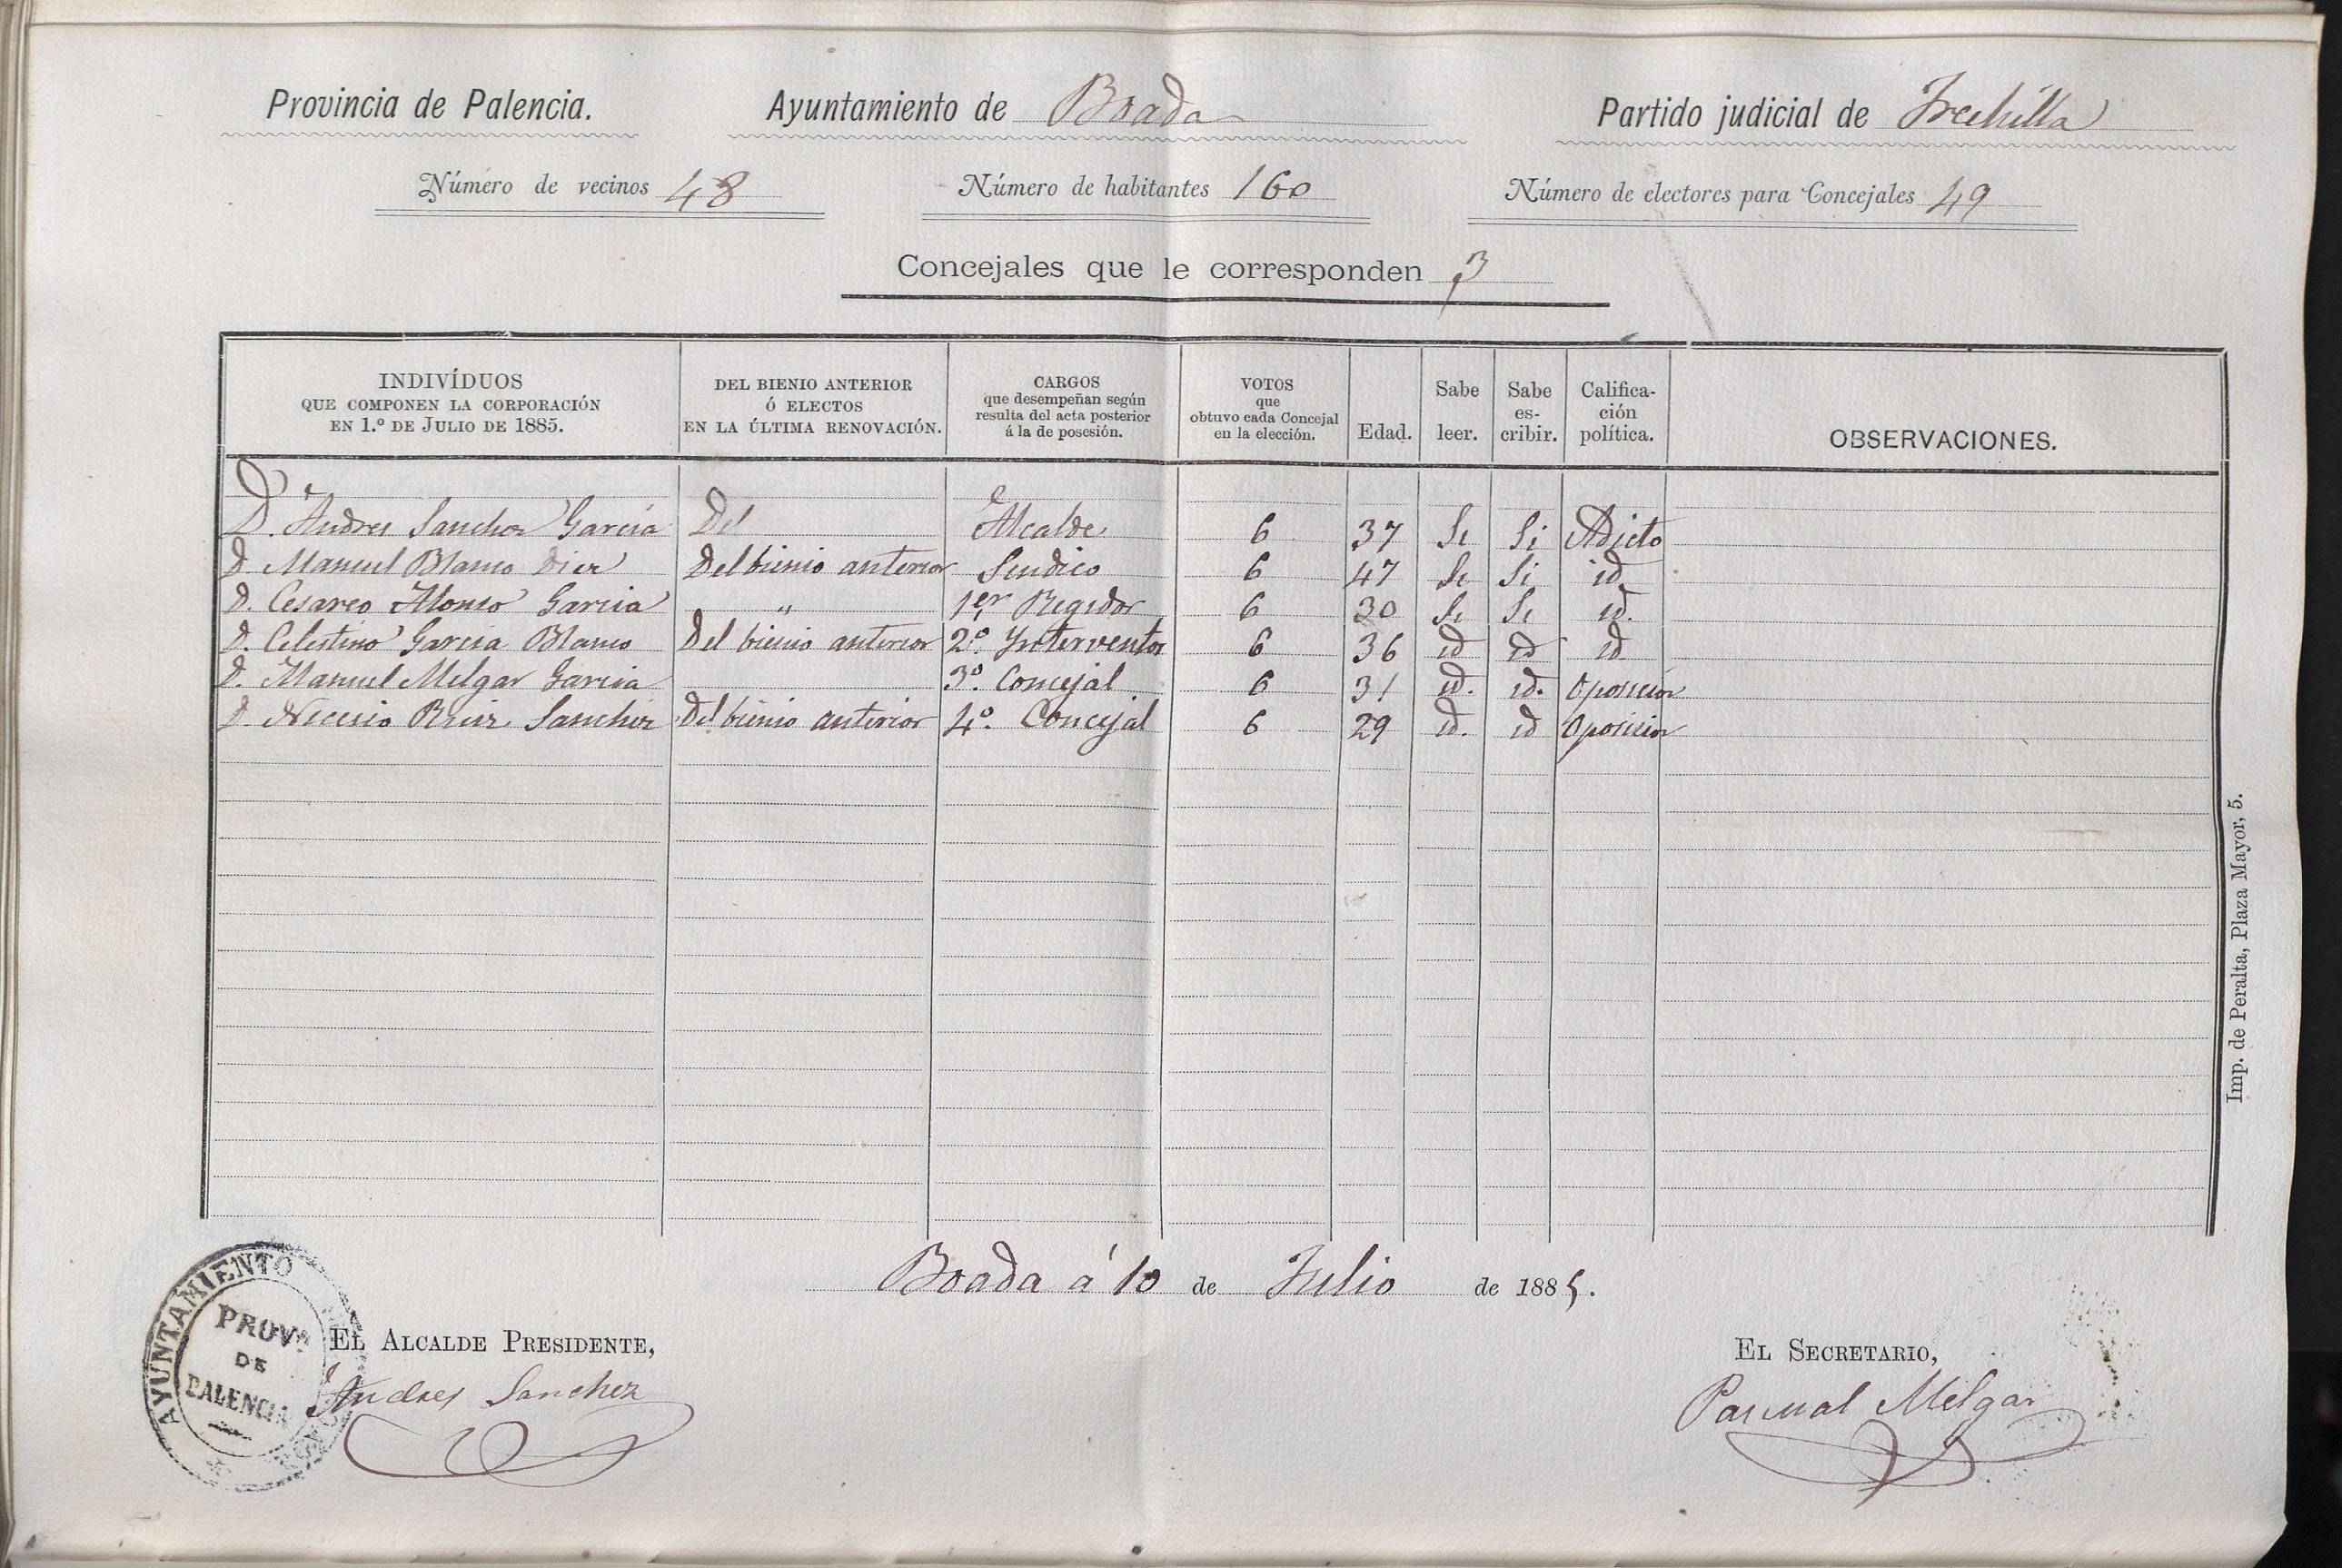 Provincia de Palencia. Ayuntamiento de Boada Partido judicial de Frechilla
Número de vecinos 48 Número de habitantes 160 Número de electores para Concejales 49
Concejales que le corresponden 3
INDIVÍDUOS QUE COMPONEN LA CORPORACIÓN EN 1.º DE JULIO DE 1885. DEL BIENIO ANTERIOR Ó ELECTOS EN LA ÚLTIMA RENOVACIÓN. CARGOS que desempeñan según resulta del acta posterior á la de posesión. VOTOS que obtuvo cada Concejal en la elección. Edad. Sabe leer. Sabe es-cribir. Califica-ción política. OBSERVACIONES.
D. Andres Sanchez Garcia Del Alcalde 6 37 Si Si Adicto
D. Manuel Blanco Diez Del bienio anterior Sindico 6 47 Si Si id.
D. Cesareo Alonso Garcia " 1er Regidor 6 30 Si Si id.
D. Celestino Garcia Blanco Del bienio anterior 2º. Interventor 6 36 id id id
D. Manuel Melgar Garcia 3º. Concejal 6 31 id. id. Oposicion
D Nicesio Ruiz Sanchez Del bienio anterior 4º. Concejal 6 29 id. id Oposicion
Imp. de Peralta, Plaza Mayor, 5.
Boada á 10 de Julio de 1885.
AYUNTAMIENTO
PROVª
DE
PALENCIA
EL ALCALDE PRESIDENTE, EL SECRETARIO,
Andres Sanchez Pascual Melgar